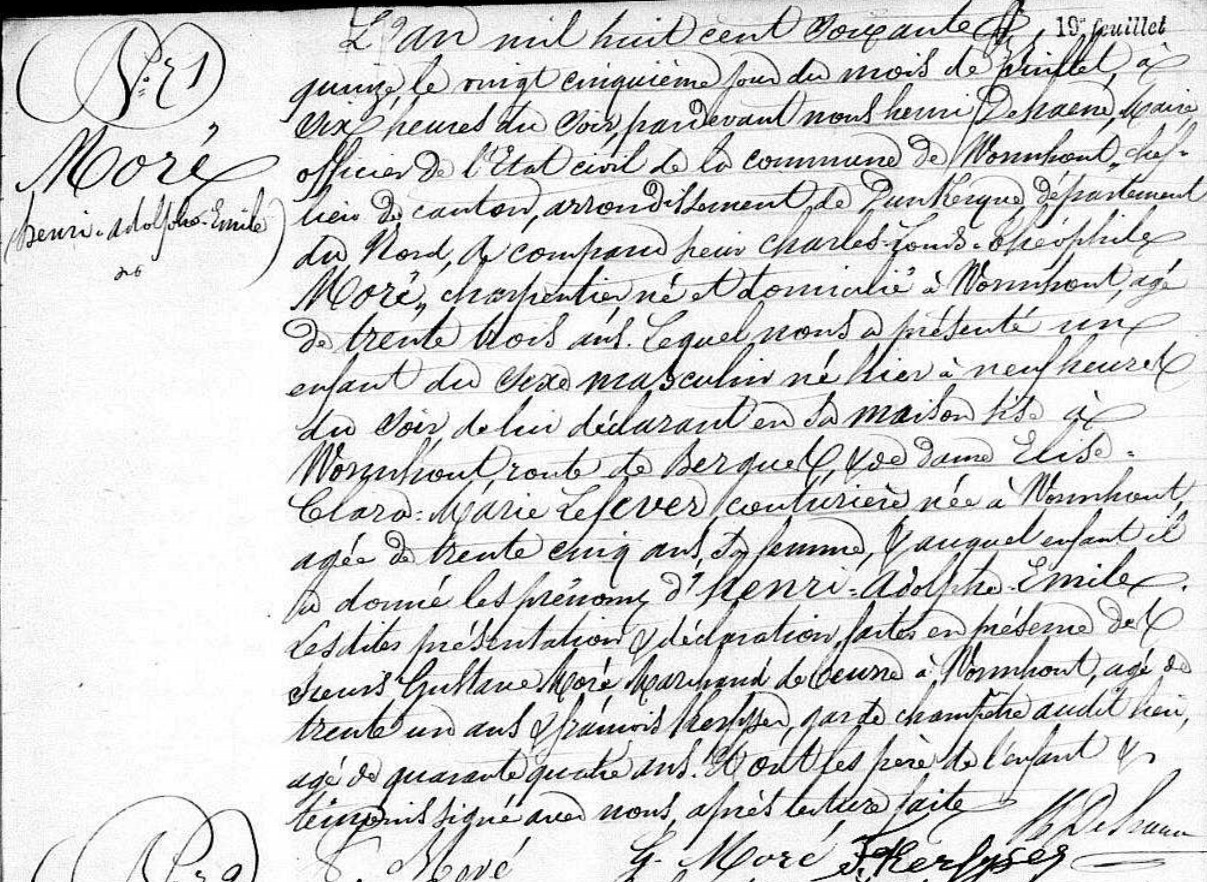 19e feuillet
N° 71
Moré
(henri-adolphe-Emile)
L'an mil huit cent soixante
quinze le vingt cinquième jour du mois de Juillet, à
six heures du soir, pardevant nous henri Dehaene, Maire
officier de l'Etat civil de la commune de Wormhout, chef-
lieu de canton, arrondissement de Dunkerque, département
du Nord, a comparu sieur Charles-Louis-théophile
Moré, charpentier né et domicilié à Wormhout, agé
de trente trois ans. Lequel nous a présenté un
enfant du sexe masculin né hier à neuf heures
du soir de lui déclarant en sa maison sise à
Wormhout, route de Bergues, & de dame Elise-
Clara-Marie Lefever, couturière née à Wormhout,
agée de trente cinq ans, sa femme, & auquel enfant il
a donné les prénoms d'henri-adolphe-Emile.
Lesdites présentation & déclaration faites en présence des
sieurs Gustave Moré Marchand de beurre à Wormhout, agé de
trente un ans & françois Kersyser, garde champêtre audit lieu,
agé de quarante quatre ans. Et ont les père de l'enfant &
témoins signé avec nous, après lecture faite
H Dehaene
Moré G. Moré F. Kersyser